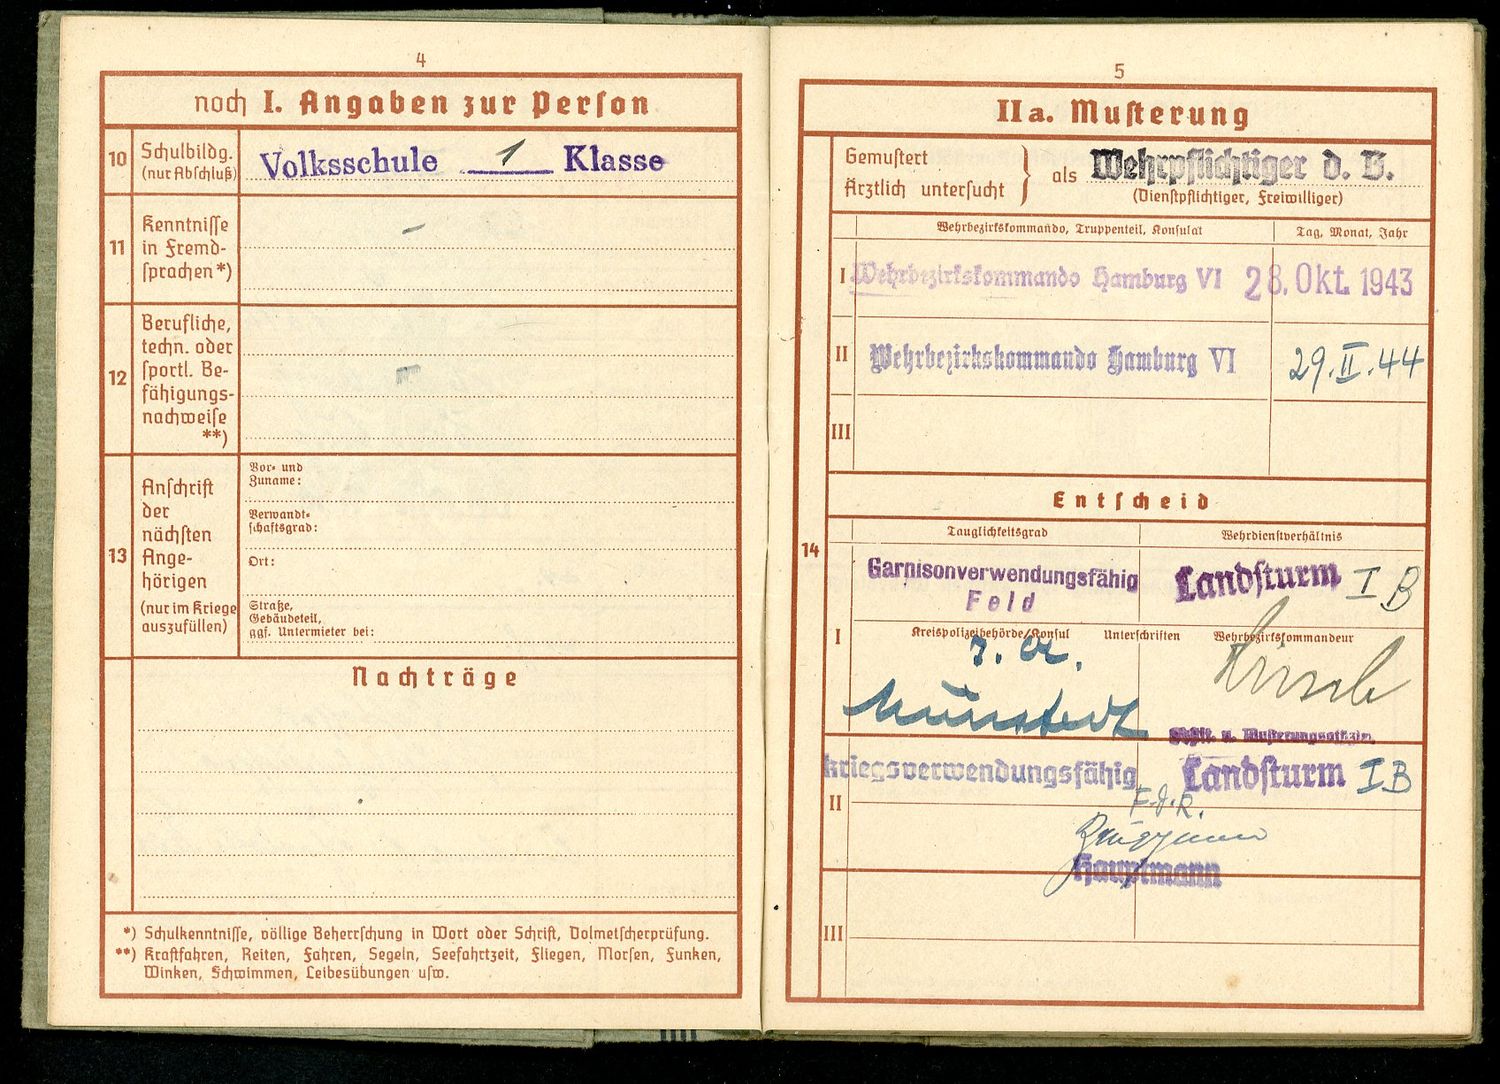 4
noch I. Angaben zur Person
10 Schulbildg. (nur Abschluß)
Volksschule 1 Klasse
11 Kenntnisse in Fremd-
sprachen*)
-
12 Berufliche,
techn. oder
sportl. Be-
fähigungs-
nachweise
**)
13 Anschrift
der
nächsten
Ange-
hörigen
(nur im Kriege
auszufüllen)
Vor- und
Zuname:
Verwandt-
schaftsgrad:
Ort:
Straße,
Gebäudeteil,
ggf. Untermieter bei:
Nachträge
*) Schulkenntnisse, völlige Beherrschung in Wort oder Schrift, Dolmetscherprüfung.
**) Kraftfahren, Reiten, Fahren, Segeln, Seefahrtzeit, Fliegen, Morsen, Funken,
Winken, Schwimmen, Leibesübungen usw.
5
IIa. Musterung
14
Gemustert
Ärztlich untersucht
als Wehrpflichtiger d. B.
(Dienstpflichtiger, Freiwilliger)
Wehrbezirkskommando, Truppenteil, Konsulat Tag, Monat, Jahr
I Wehrbezirkskommando Hamburg VI 28. Okt. 1943
II Wehrbezirkskommando Hamburg VI 29.II.44
III
Entscheid
Tauglichkeitsgrad Wehrdienstverhältnis
Garnisonverwendungsfähig Landsturm I B
Feld
I Kreispolizeibehörde/Konsul Unterschriften Wehrbezirkskommandeur
Münstedt
kriegsverwendungsfähig Landsturm I B
II F.d.R.
Hauptmann
III